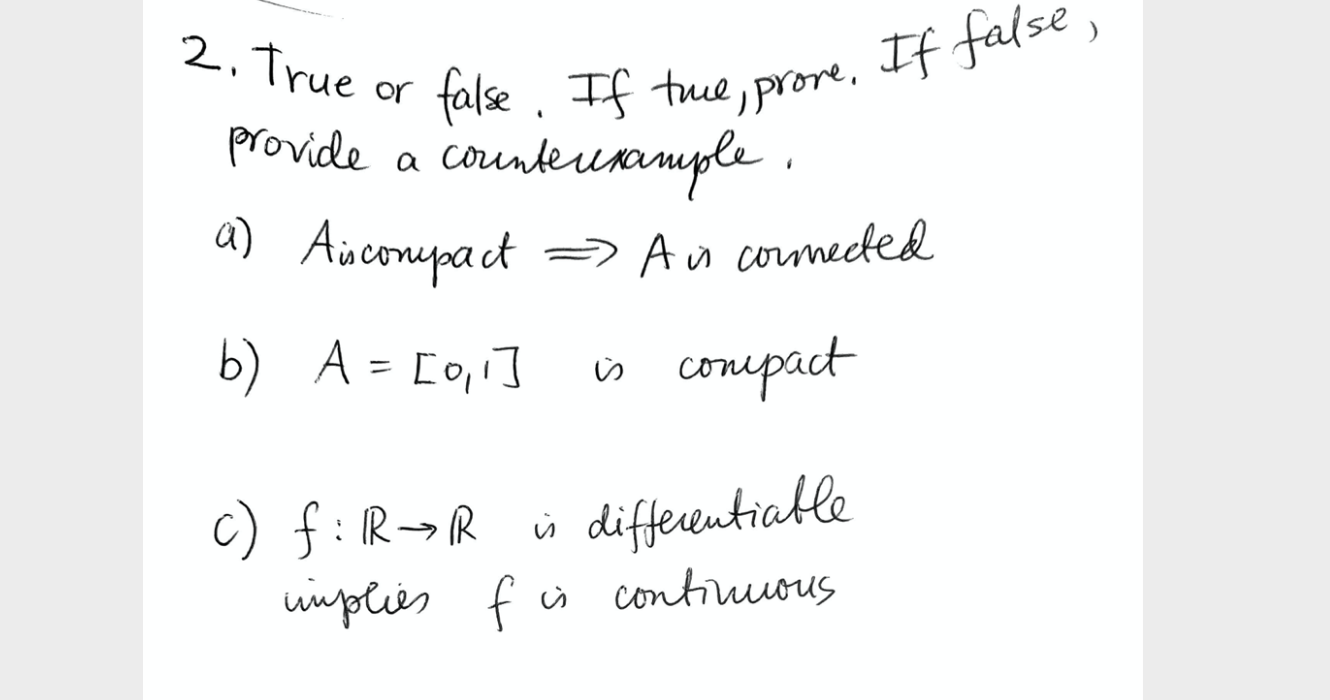 2. True or false. If true, prove. If false,
provide a counterexample.
a) A is compact ⟹ A is connected
b) A = [0,1] is compact
c) f : ℝ → ℝ is differentiable
implies f is continuous